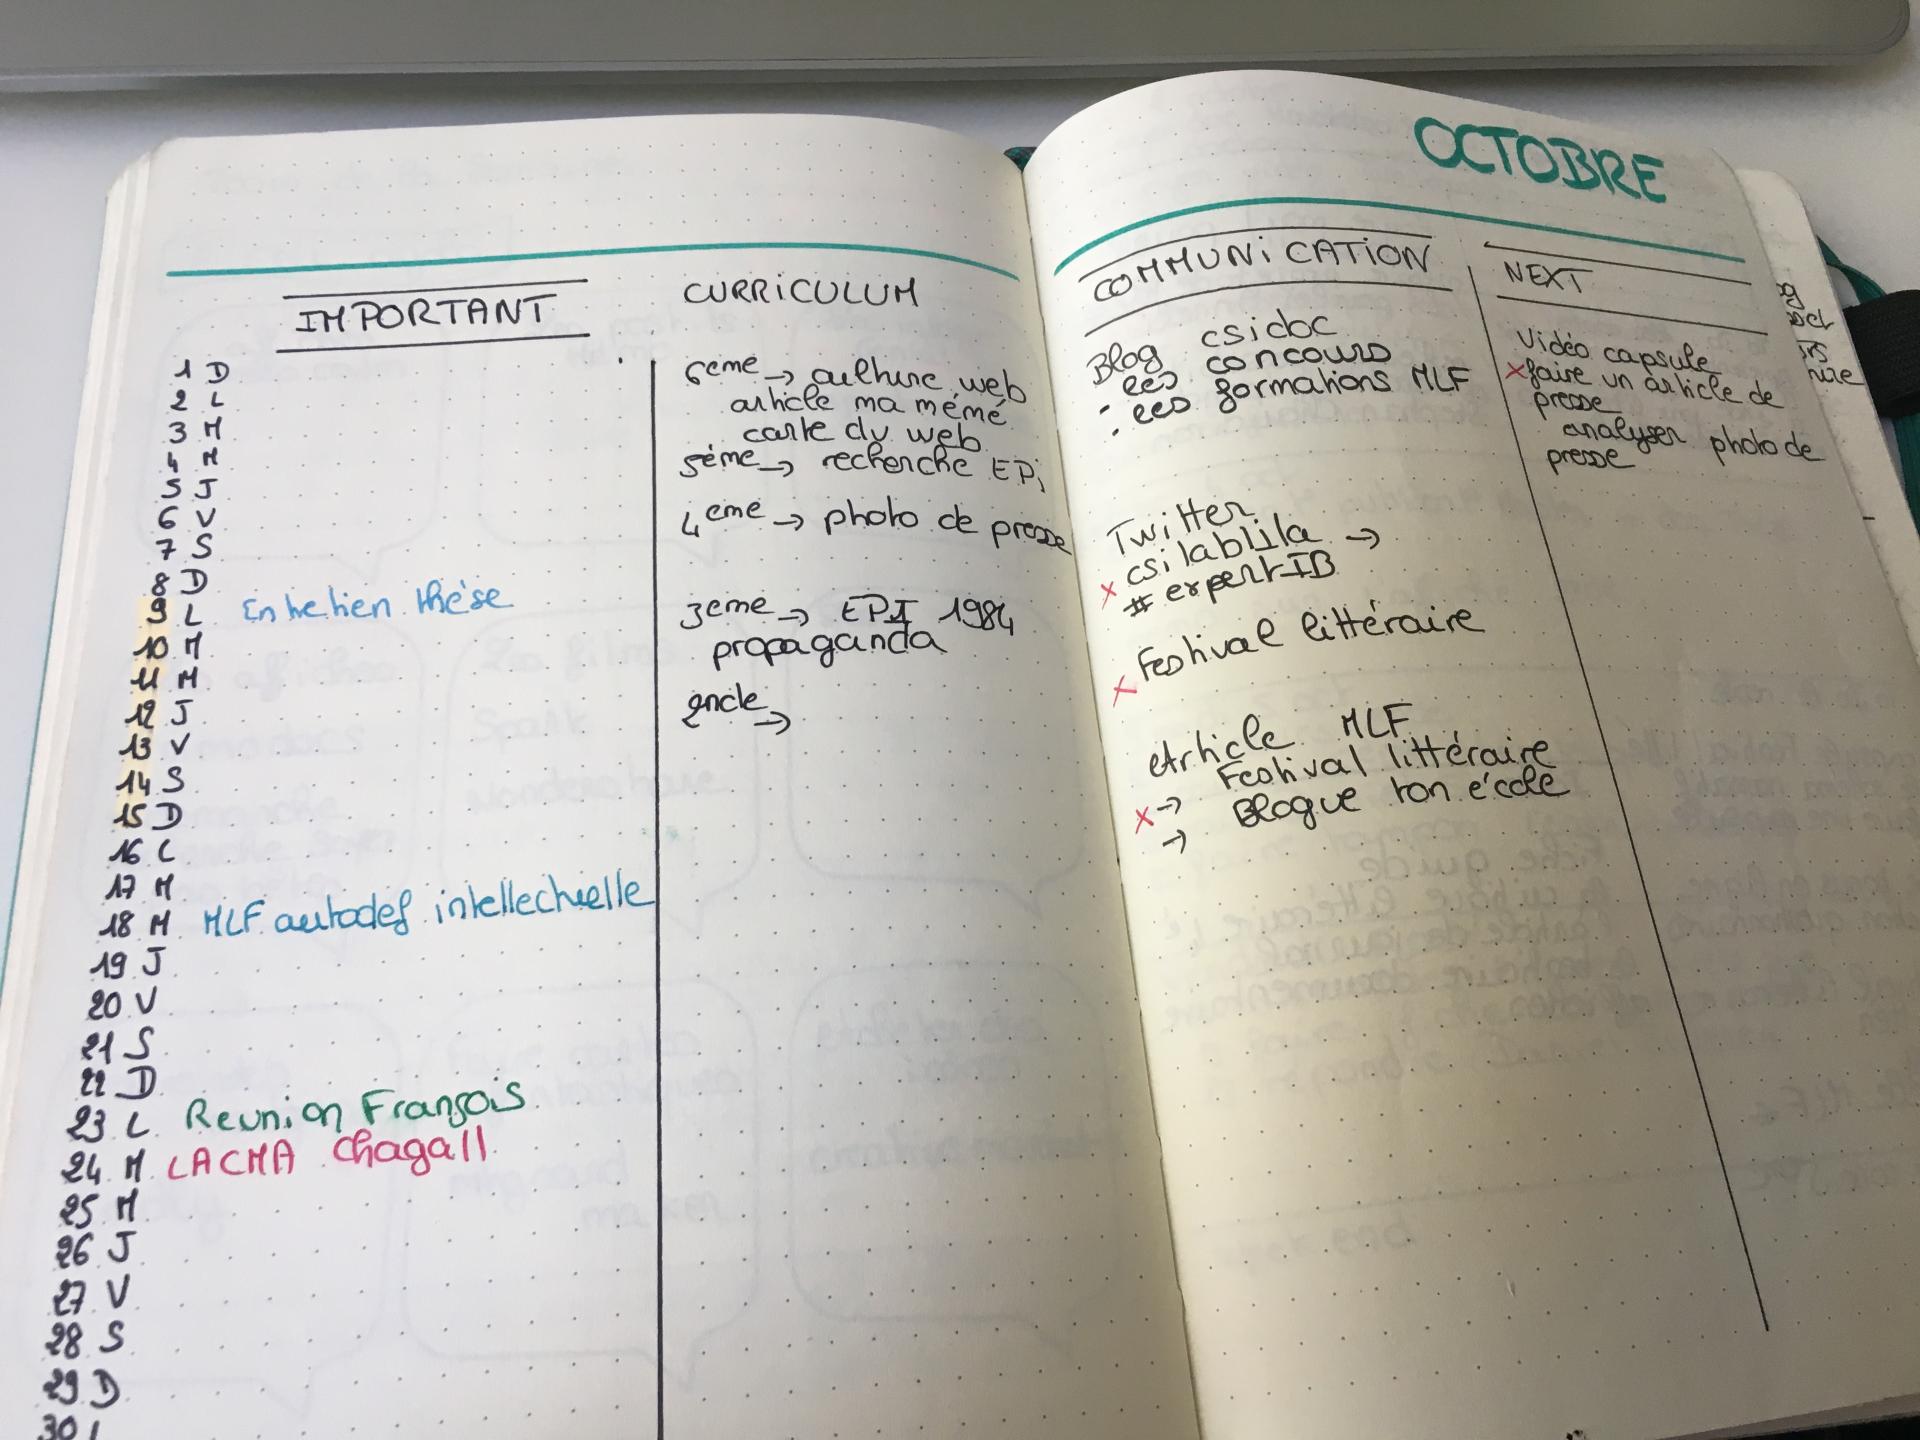 OCTOBRE
IMPORTANT
1 D
2 L
3 M
4 M
5 J
6 V
7 S
8 D
9 L Entretien thèse
10 M
11 M
12 J
13 V
14 S
15 D
16 L
17 M
18 M MLF autodef intellectuelle
19 J
20 V
21 S
22 D
23 L Reunion François
24 M LACMA Chagall
25 M
26 J
27 V
28 S
29 D
30 L
CURRICULUM
6eme → culture web
article ma mémé
carte du web
5ème → recherche EPi
4eme → photo de presse
3eme → EPI 1984
propaganda
2nde →
COMMUNICATION
Blog csidoc
• les concours
• les formations MLF
Twitter
csilablila →
x # expertIB
x Festival littéraire
Article MLF
x → Festival littéraire
→ Blogue ton école
NEXT
Vidéo capsule
x faire un article de
presse
analyser photo de
presse